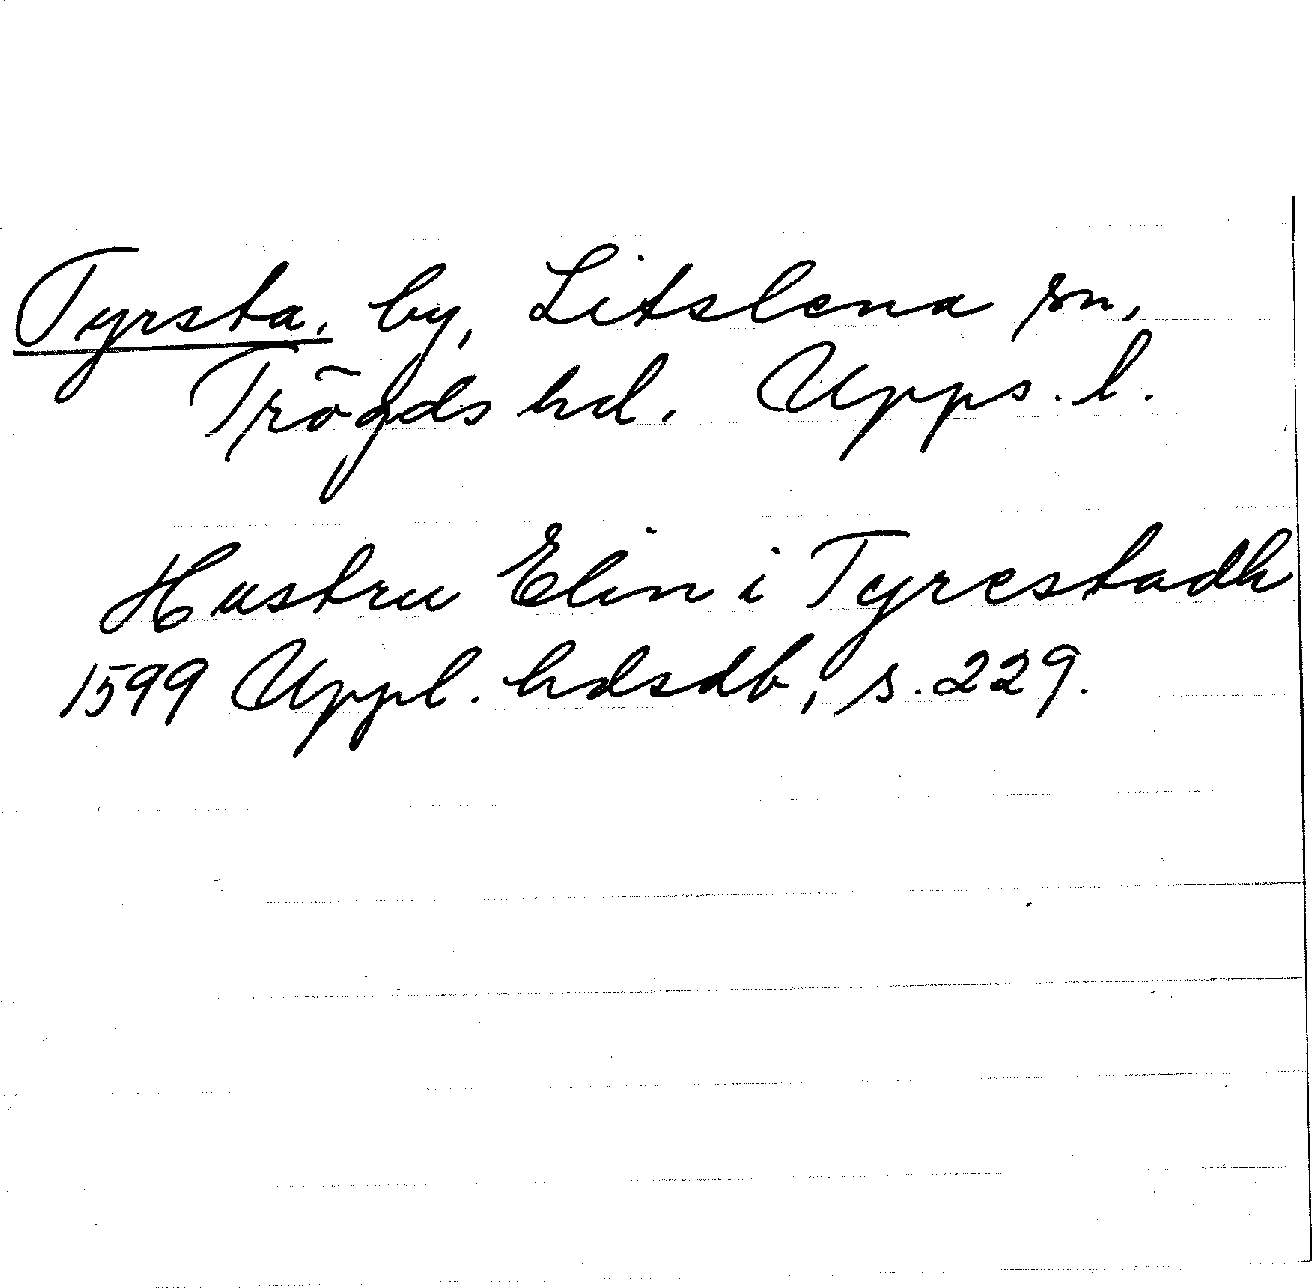 Tyrsta, by, Litslena sn,
Trögds hd. Upps. l.
Hustru Elin i Tyrestadh
1599 Uppl. hdsdb, s. 229.